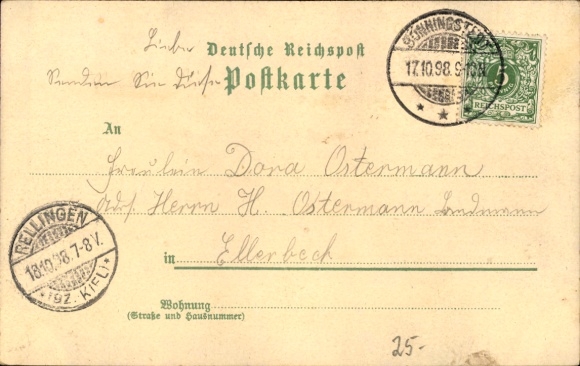 Liebe
Deutsche Reichspost
Senden Sie diese
Postkarte
BÖNNINGSTEDT
17.10.98. 9-10 N.
5
REICHSPOST
An
Fräulein Dora Ostermann
Adr Herrn H Ostermann Landmann
in Ellerbeck
RELLINGEN
18.10.98. 7-8 V.
(BZ. KIEL)
Wohnung
(Straße und Hausnummer)
25-